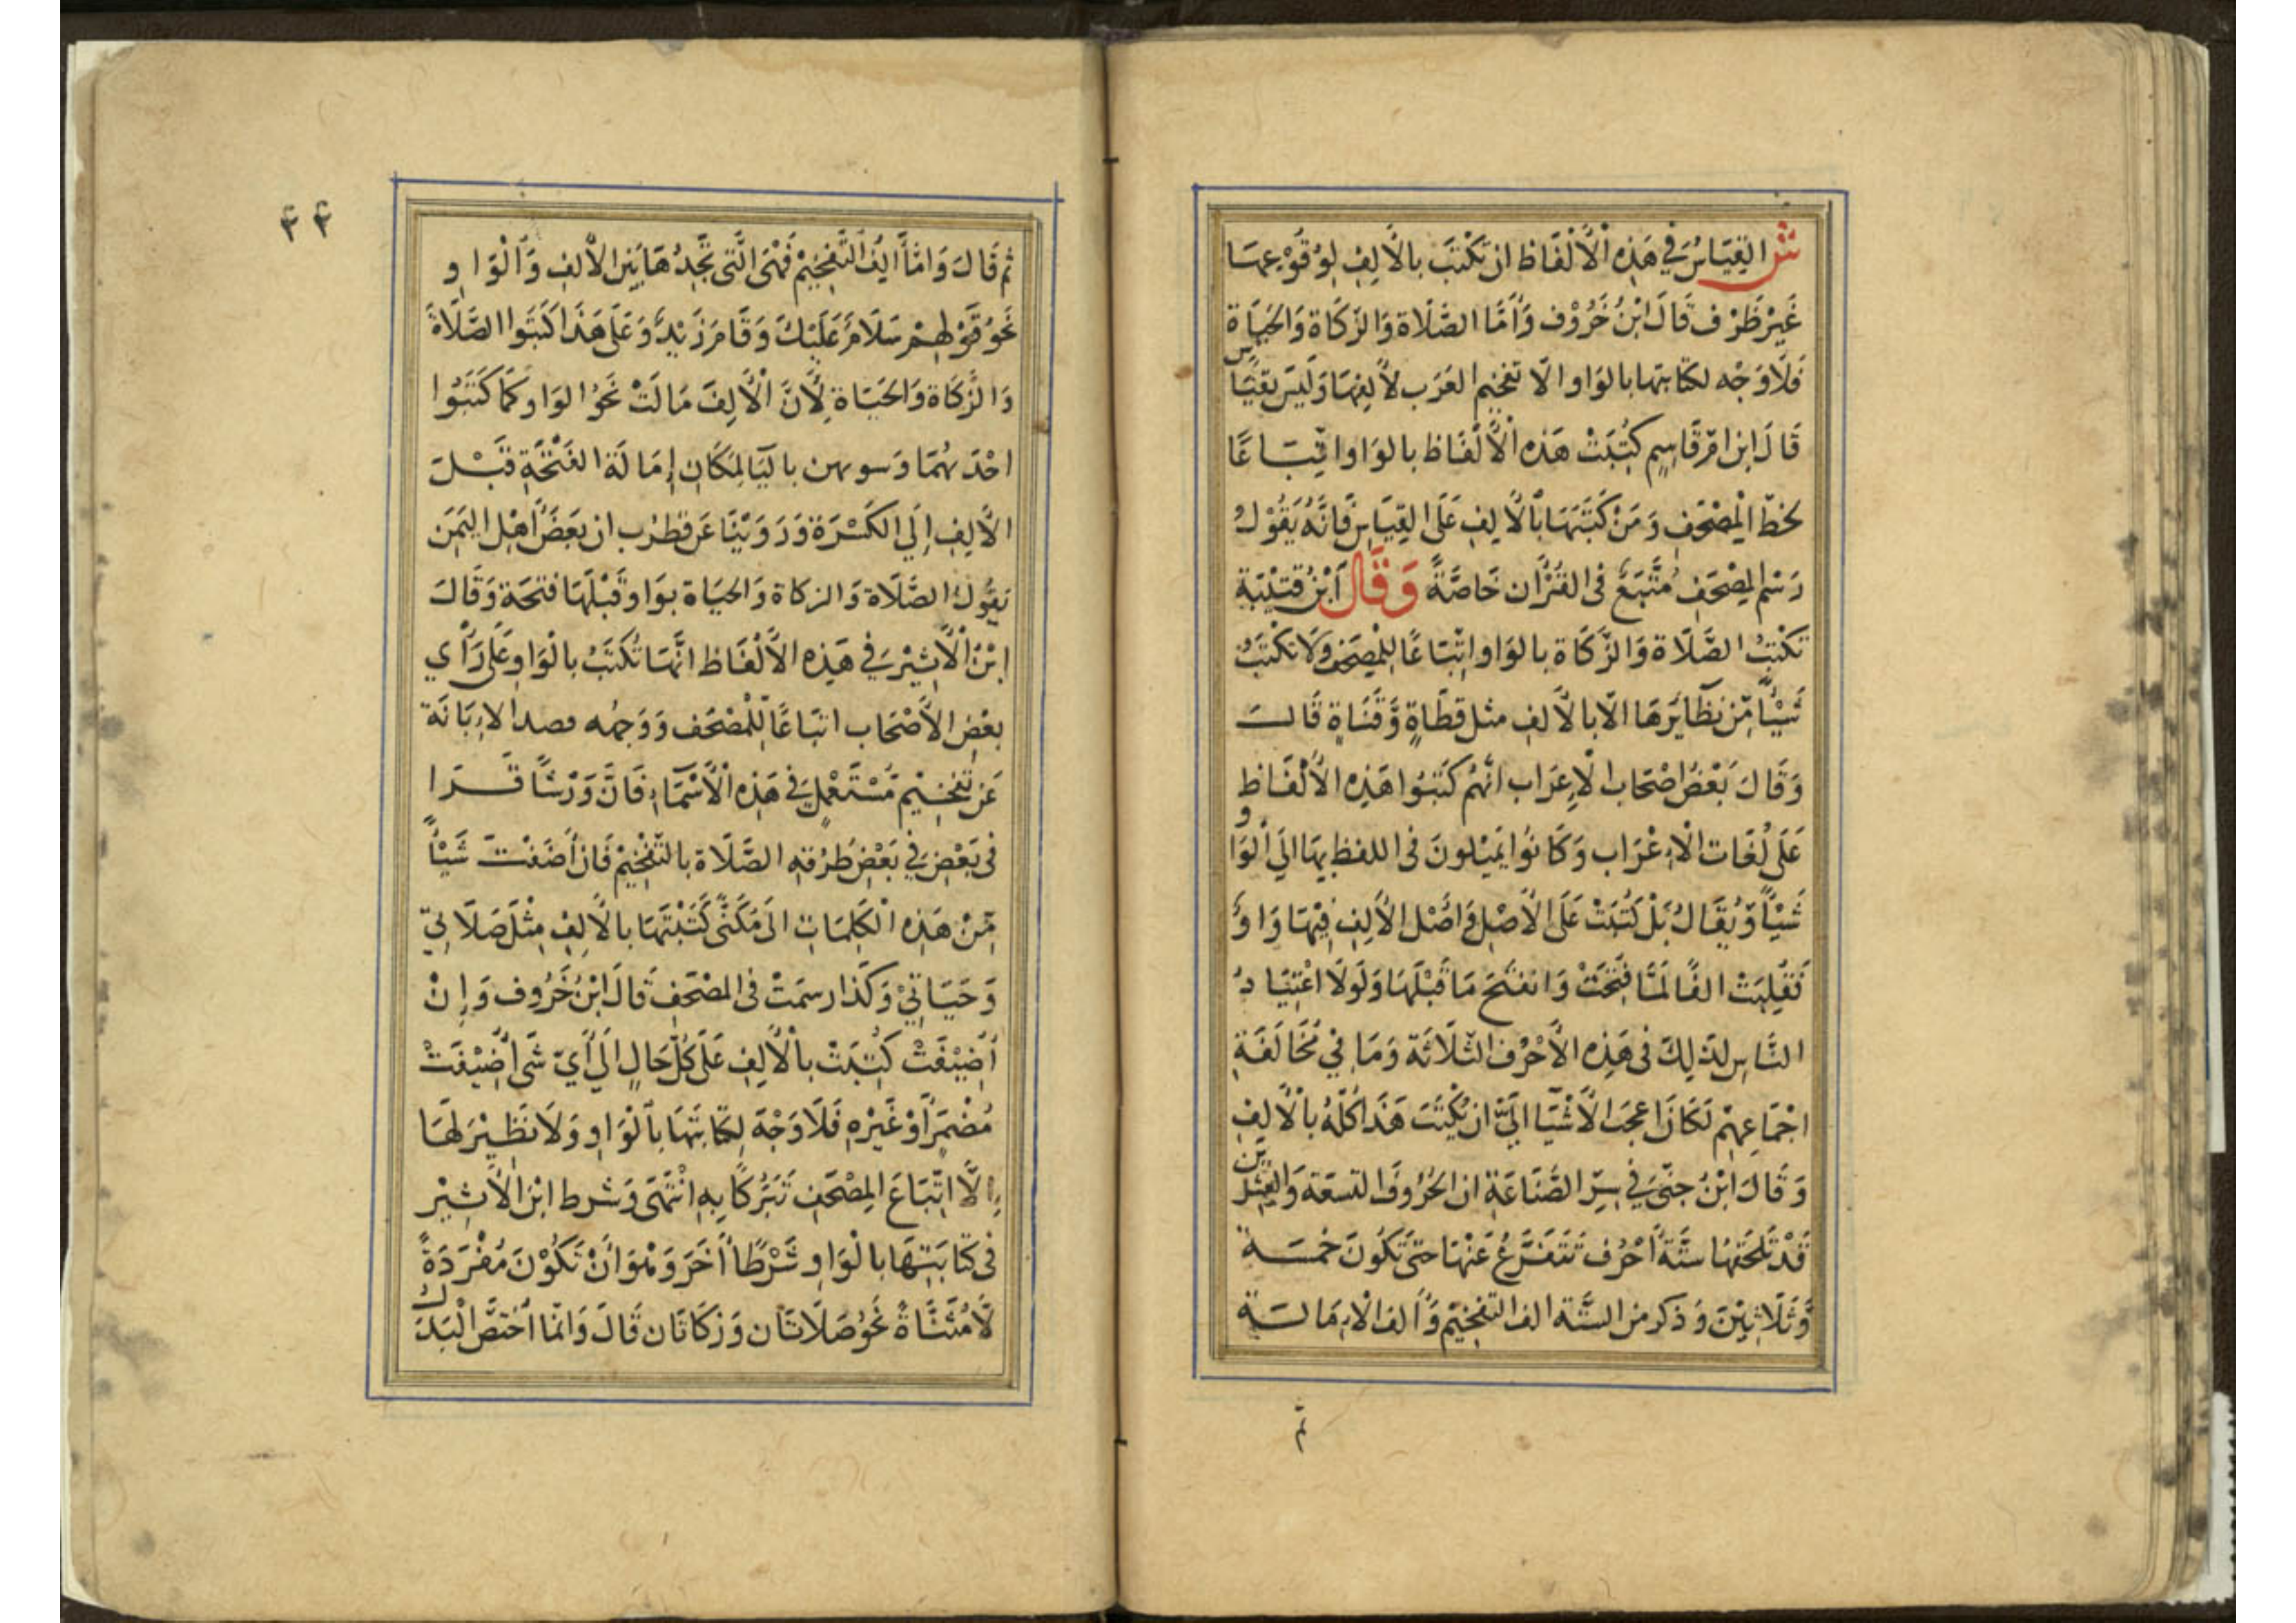 ش القِيَاسُ فِي هَذِهِ الْأَلْفَاظ ان تكْتبَ بالْأَلِفِ لِوُقُوْعِهَا
غَيْرَ ظَرْف قَالَ ابْنُ خَرُوْف وَأَمَّا الصَّلَاة وَالزكَاة وَالحَيَاة
فَلَا وَجْه لكتابتها بالوَاو الّا تفخيم العَرَب لألِفِهَا وَلَيسَ بقيَاس
قَالَ ابن امّ قَاسِمٍ كُتِبَتْ هَذِه الْأَلْفَاظ بالوَاو اتِّبَاعًا
لخطّ الْمصْحَفِ وَمَنْ كَتَبَهَا بِالْأَلِفِ عَلَى القِيَاسِ فَانَّهُ يَقُوْلُ
رَسْم المصْحَفِ مُتَّبَعٌ فى القُرْآن خَاصَّةً وَقَالَ ابْنُ قتَيْبَة
تكْتبُ الصَّلَاة وَالزَّكَاة بالوَاو اتّبَاعًا لِلْمصْحَفِ وَلَا تكْتَبُ
شَيْأً مِّنْ نظَائِرَهَا الّا بالأَلفِ مثل قطَاةٍ وَّقَنَاةٍ قَالَ
وَقَالَ بَعْضُ اصْحَاب الْإِعرَاب انّهُم كَتَبُوا هَذِه الأَلْفَاظ
عَلَى لُغَات الْأَعْرَاب وَكَانُوا يَمِيْلونَ فى اللفظ بِهَا الَى الْوَاو
شَيْأً وَّيُقَالُ بَلْ كُتِبَتْ عَلَى الأَصْلِ وَاصْل الأَلِفِ فِيْهَا وَاوٌ
فَقُلِبَتْ الفًا لَمَّا فتحَتْ وَانفتَحَ مَا قَبْلَهَا وَلَولَا اعْتِيَادُ
النَّاسِ لذَلِكَ فى هَذِهِ الأَحْرُف الثّلَاثَة وَمَا فِيْ مُخَالَفَةِ
اجْمَاعِهِمْ لَكَانَ اعجَبَ الأَشْيَا الَىَّ ان يُكْتَبَ هَذَا كُلّهُ بالْأَلِفِ
وَقَالَ ابْنُ جنّىّ فِي سِرِّ الصَّنَاعَةِ ان الحُرُوفَ التسعَة وَالعِشْرِين
قَدْ تَلْحَقهَا ستَّةُ احْرُف تَتَفَرَّعُ عَنْهَا حتىّ تَكُونَ خمسَة
وَّثَلَاثِيْنَ وَذَكرَ من السِّتّة الف التفخيْم وَأَلفَ الْإمَالَة
ثم
٤٤
ثم قَالَ وَامَّا أَلِفُ التَّفخِيْمْ فَهْىَ الَّتى تَجِدُهَا بَيْنَ الأَلِفِ وَالْوَاوِ
نَحْوُ قَوْلِهِمْ سَلَامٌ عَلَيْكَ وَقَامَ زَيْدٌ وَعَلَى هَذَا كَتَبُوا الصَّلَاةَ
وَالزَّكَاة وَالحَيَاة لِأَنَّ الْأَلِفَ مَالَتْ نَحْوُ الوَاو كَمَا كَتَبُوا
احْدَيهُمَا وَسويهن باليَا لِمَكَانِ إِمَالَة الفَتْحَةِ قَبْلَ
الأَلِفِ إِلَي الكَسْرَة وَرَوَيْنَا عَن قطرُب ان بَعضَ اهْل اليَمَن
يَقُولُ الصَّلَاة وَالزكاة وَالحيَاة بوَاو قَبْلَهَا فتحَة وَقَالَ
ابْنُ الْأَثِيْر فِي هَذِه الأَلْفَاظ انَّهَا تُكتَبُ بالْوَاوِ عَلَى رَأْي
بعْضِ الأَصْحَاب اتّبَاعًا لِّلْمصْحَف وَوَجهُه قصد الإِبَانَة
عَن تَفْخِيْم مُسْتَعْمَلٍ فِي هَذِه الْأَسْمَاءِ فَانَّ وَرْشًا قَرَا
فى بَعْضِ فِي بَعْضِ طُرْقه الصَّلَاة بالتّفْخِيمْ فَان أَضَفْتَ شَيْأً
مِّنْ هَذِه الْكَلِمَاتِ الَى مُكَنًّى كَتَبْتَهَا بالأَلِفِ مِثْلَ صَلَاتِيْ
وَحَيَاتِيْ وَكَذَا رسمَتْ فى المصْحَفِ قَالَ ابْنُ خَرُوف وَإِنْ
أُضِيْفَتْ كُتِبَتْ بالْأَلِفِ عَلَى كُلّ حَالٍ الَي أَيّ شَىْ اُضِيْفَتْ
مُضْمَرٍ أَوْ غَيْرِه فَلَا وَجْهَ لِكتَابَتِهَا بالْوَاوِ وَلَا نَظِيْرَ لَهَا
إِلَّا اتّبَاعَ المصْحَفِ تَبَرُّكًا بِهِ انْتَهَى وَشَرط ابْن الأَثِيْر
فى كتَابَتِهَا بالْوَاوِ شَرْطًا أَخَرَ وَهُوَ أَنْ تَكُوْنَ مُفْرَدَةً
لَّا مُثَنَّاةً نَحْوُ صَلَاتَان وَزكَاتَان قَالَ وَانَّمَا اخْتصَّ الْبَدَلُ